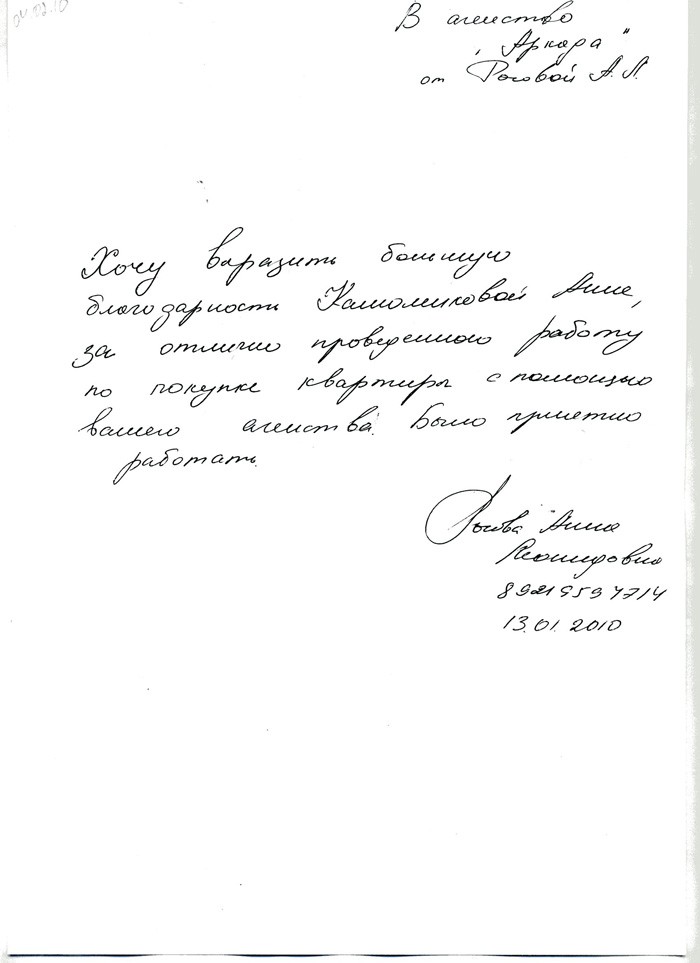 04.02.10
В агенство
"Аркада"
от Роговой А.Л.
Хочу выразить большую
благодарность Анне,
за отлично проведенную работу
по покупке квартиры с помощью
вашего агенства. Было приетно
работать.
Рогова Анна
Леонидовна
13.01.2010